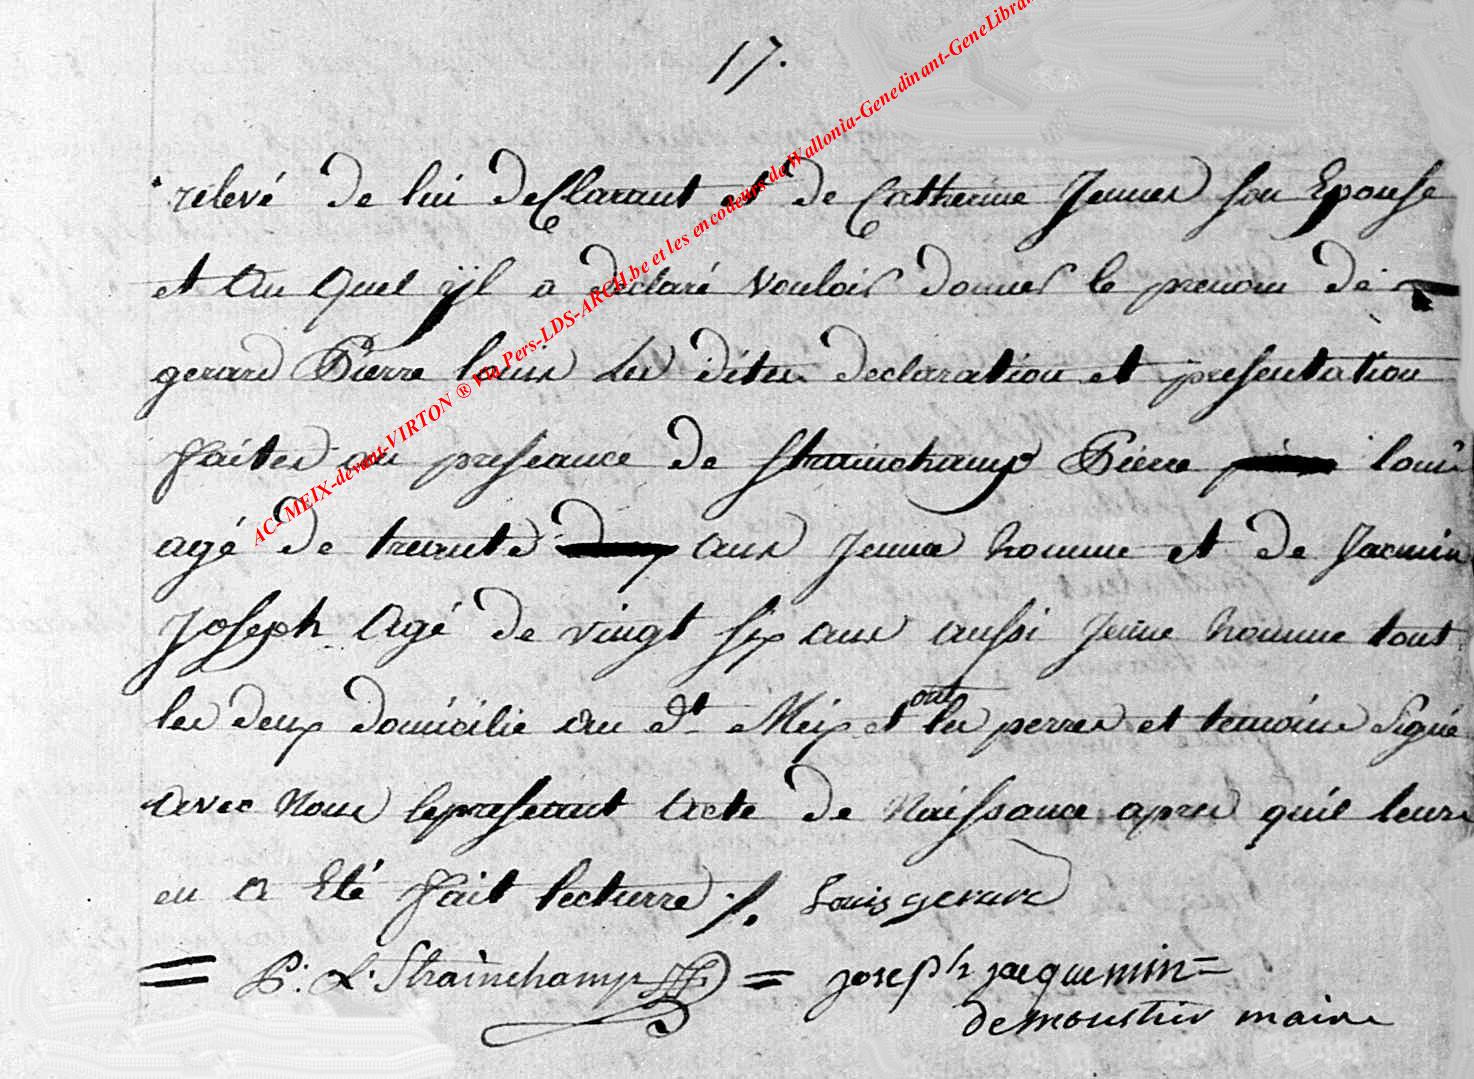 17.
relevé de lui deClarant et de Catherine Jeunes son Epouse
et Au Quel yîl a déclaré Vouloir donner le prenom de
gerard Pierre louis les dites declaration et presentation
faites en presance de Strainchamp Pierre louis
agé de trente ans Jeune homme et de Jacmin
Joseph Agé de vingt six ans aussi Jeune homme tout
les deux domicilié Au dt Meix et ont les perres et temoins Signé
Avec Nous lepresent Acte de Naissance apres quil leurs
en A Eté fait lecturre ./. Louis gerard
= P: L: Strainchamps = joseph jacquemin =
demoustier maire
AC- MEIX-devant-VIRTON ® Via Pers-LDS-ARCH.be et les encodeurs de Wallonia-Genedinant-GeneLibran